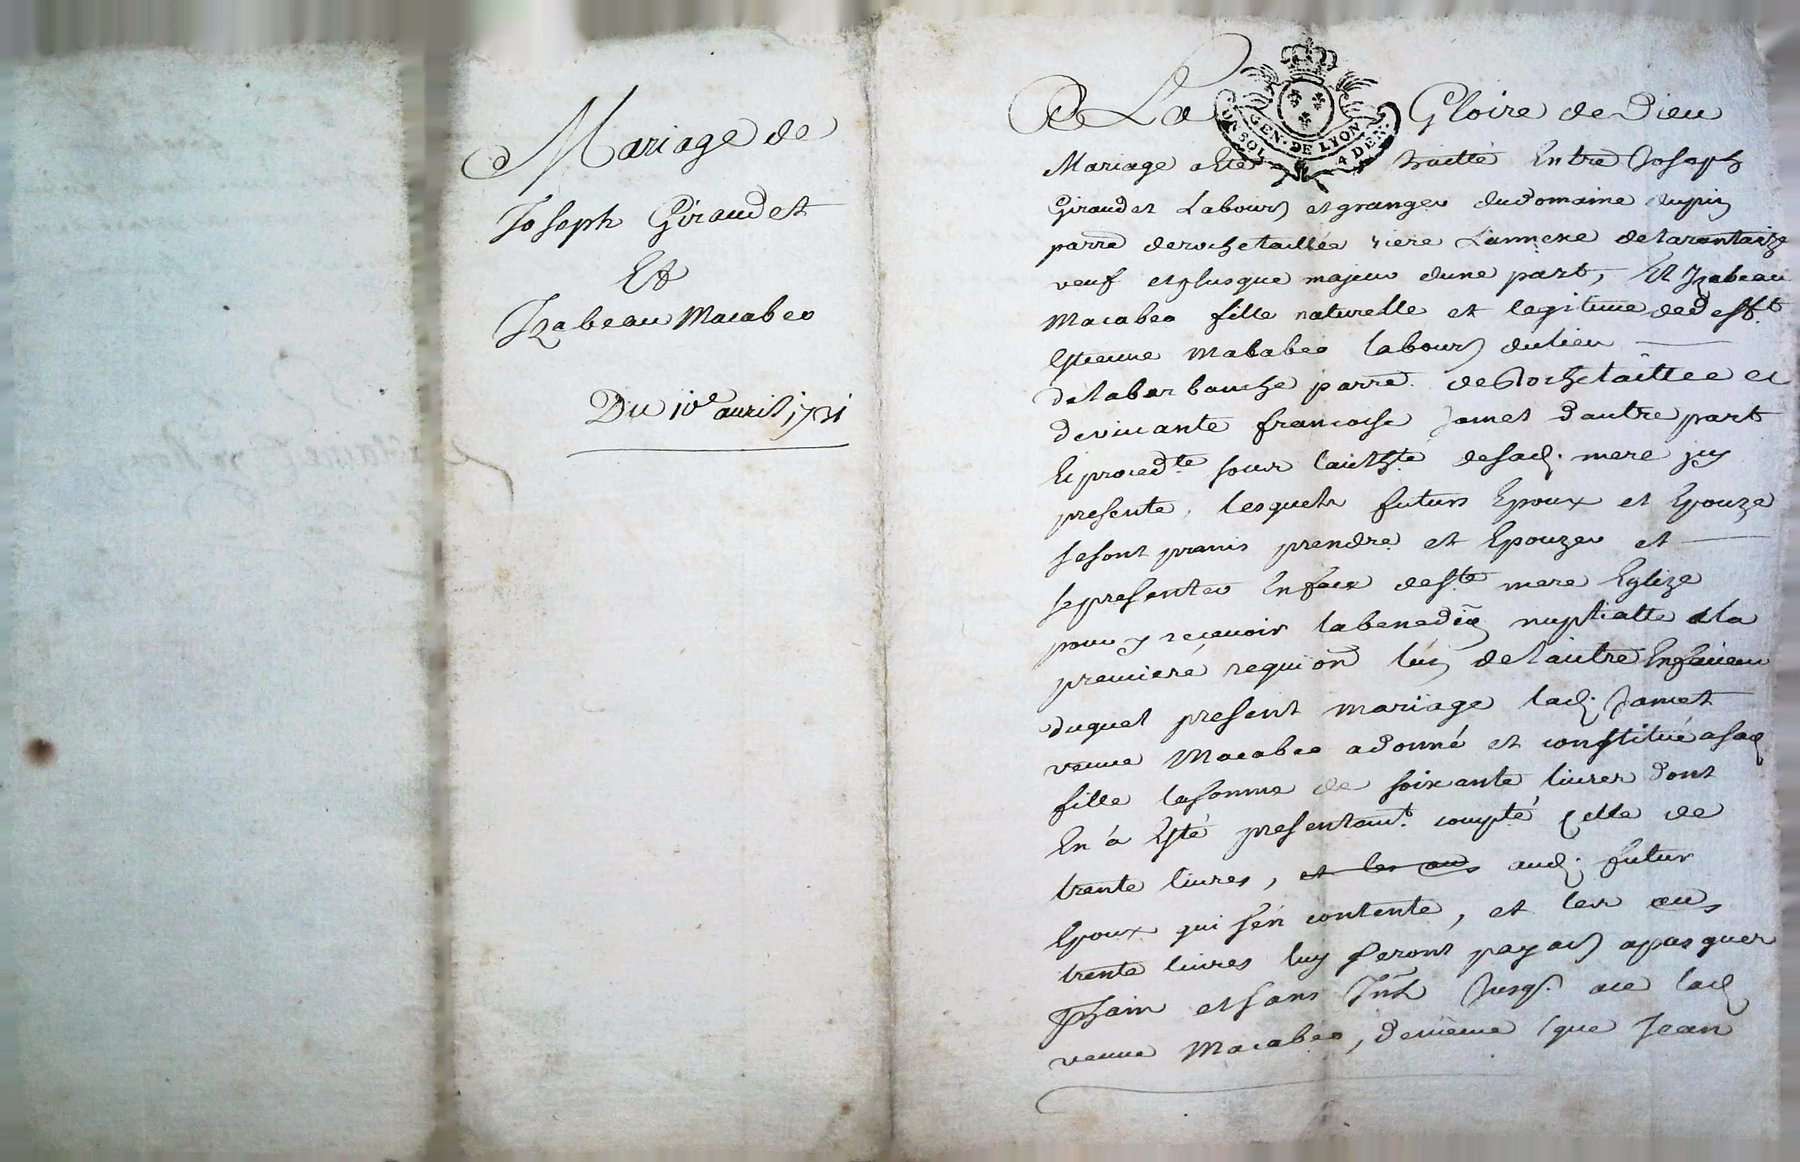 Mariage de
Joseph Giraudet
Et
Izabeau Macabeo
Du 10e avril 1731
A La Gloire de Dieu
GEN. DE LYON
UN SOL 4 DEN.
Mariage a ete traitté Entre Joseph
Giraudet Labourr et granger du domaine dupin
parre de rochetaillée riere L'annexe de tarantaize
veuf et plusque majeur dune part, Et Izabeau
Macabeo fille naturelle et legitime de defft
Estienne Macabeo labourr du lieu
de la barbanche parre de Rochetaillée et
de vivante francoise Jamet d'autre part
Et procedte sous l'authte de sad. mere icy
presente, lesquels futurs Epoux et Epouze
se sont promis prendre et Epouzer et
se presenter En face de ste mere Eglize
pour y recevoir la benedion nuptialle a la
premiere requion lun de l'autre En faveur
duquel present mariage lad. Jamet
veuve Macabeo a donné et constitué a sad
fille la somme de soixante livres dont
En a Esté presentamt compté celle de
trente livres, et les au aud. futur
Epoux qui s'en contente, et les aus
trente livres luy seront payais a pasques
Phain et sans Int Jusqs. ace lad
veuve Macabeo, de meme que Jean